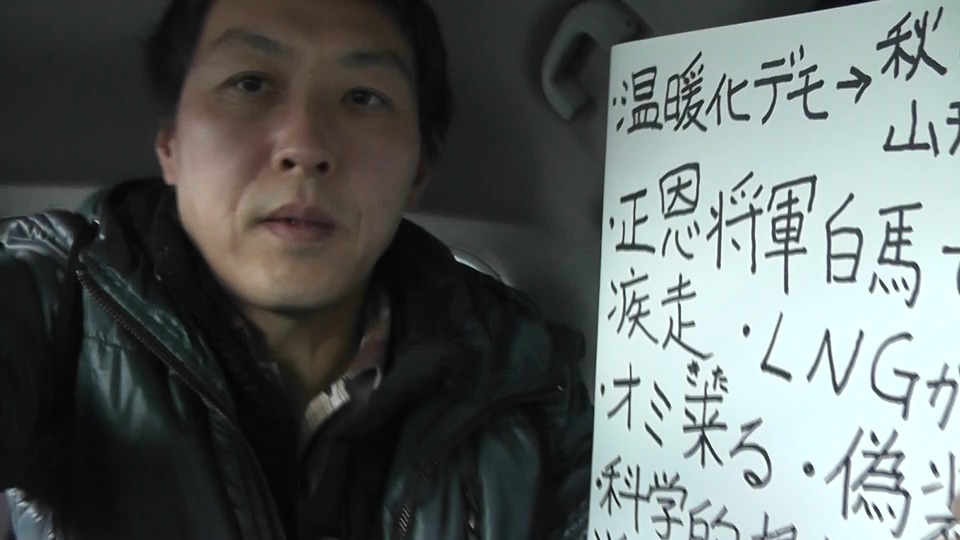 ・温暖化デモ→秋
山形
・正恩将軍白馬
疾走 ・LNGが
・オミ来る きた
・科学的 ・偽